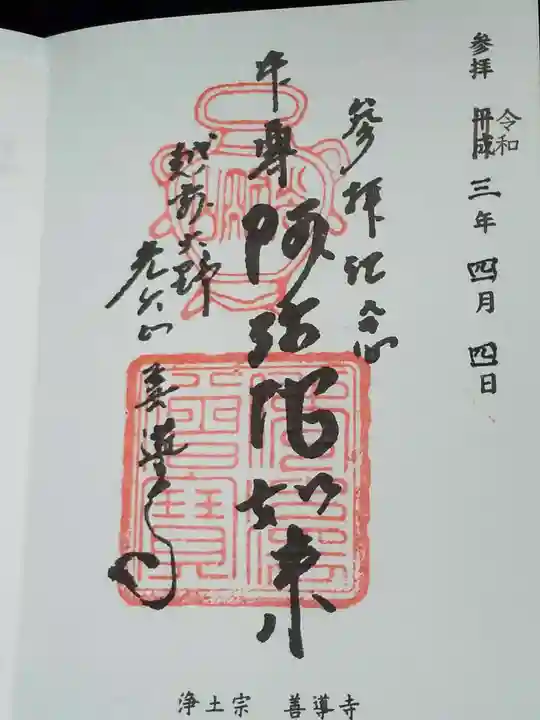 参拝 平成 令和 三年 四月 四日
参拝記念
本尊 阿弥陀如来
越前大野
光明山
善導寺
浄土宗 善導寺